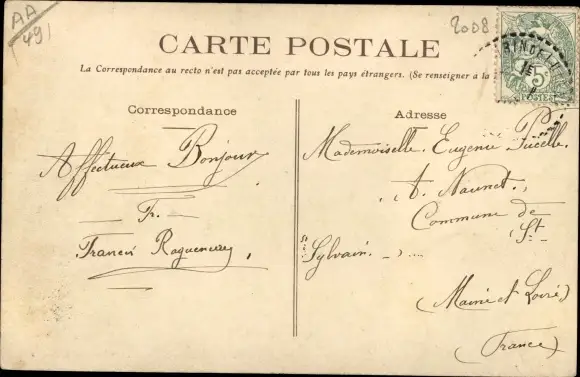 AA
491
2008
CARTE POSTALE
La Correspondance au recto n'est pas acceptée par tous les pays étrangers. (Se renseigner à la
5
POSTES
Correspondance
Affectueux Bonjour
Fr.
Francis
Adresse
Mademoiselle. Eugenie Pucelle.
A. Naunet.,
Commune de
St
Sylvain.
(Maine et Loire)
(France)